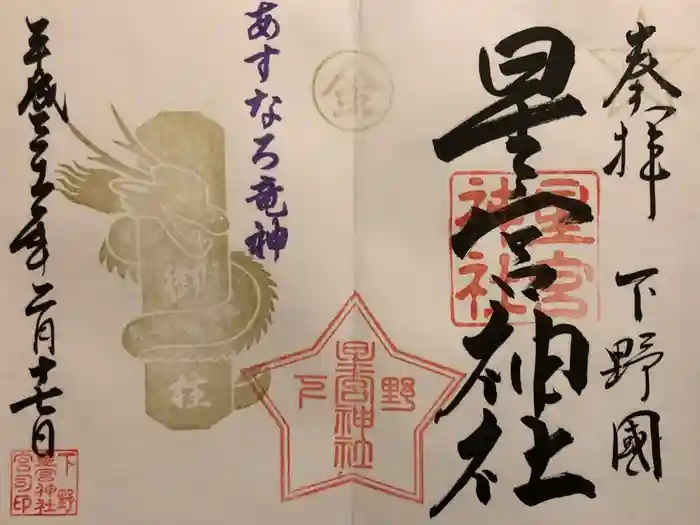 奉拝 下野國
星宮神社
星宮
神社
金
あすなろ竜神
星宮神社
下野
御柱
平成三十年二月十七日
下野
星宮神社
宮司印